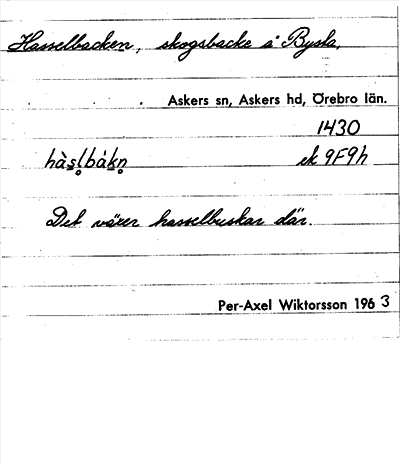 Hasselbacken, skogsbacke å Bysta.
Askers sn, Askers hd, Örebro län.
1430
hàsl̥bákn̥ ek 9F9h
Det växer hasselbuskar där.
Per-Axel Wiktorsson 1963